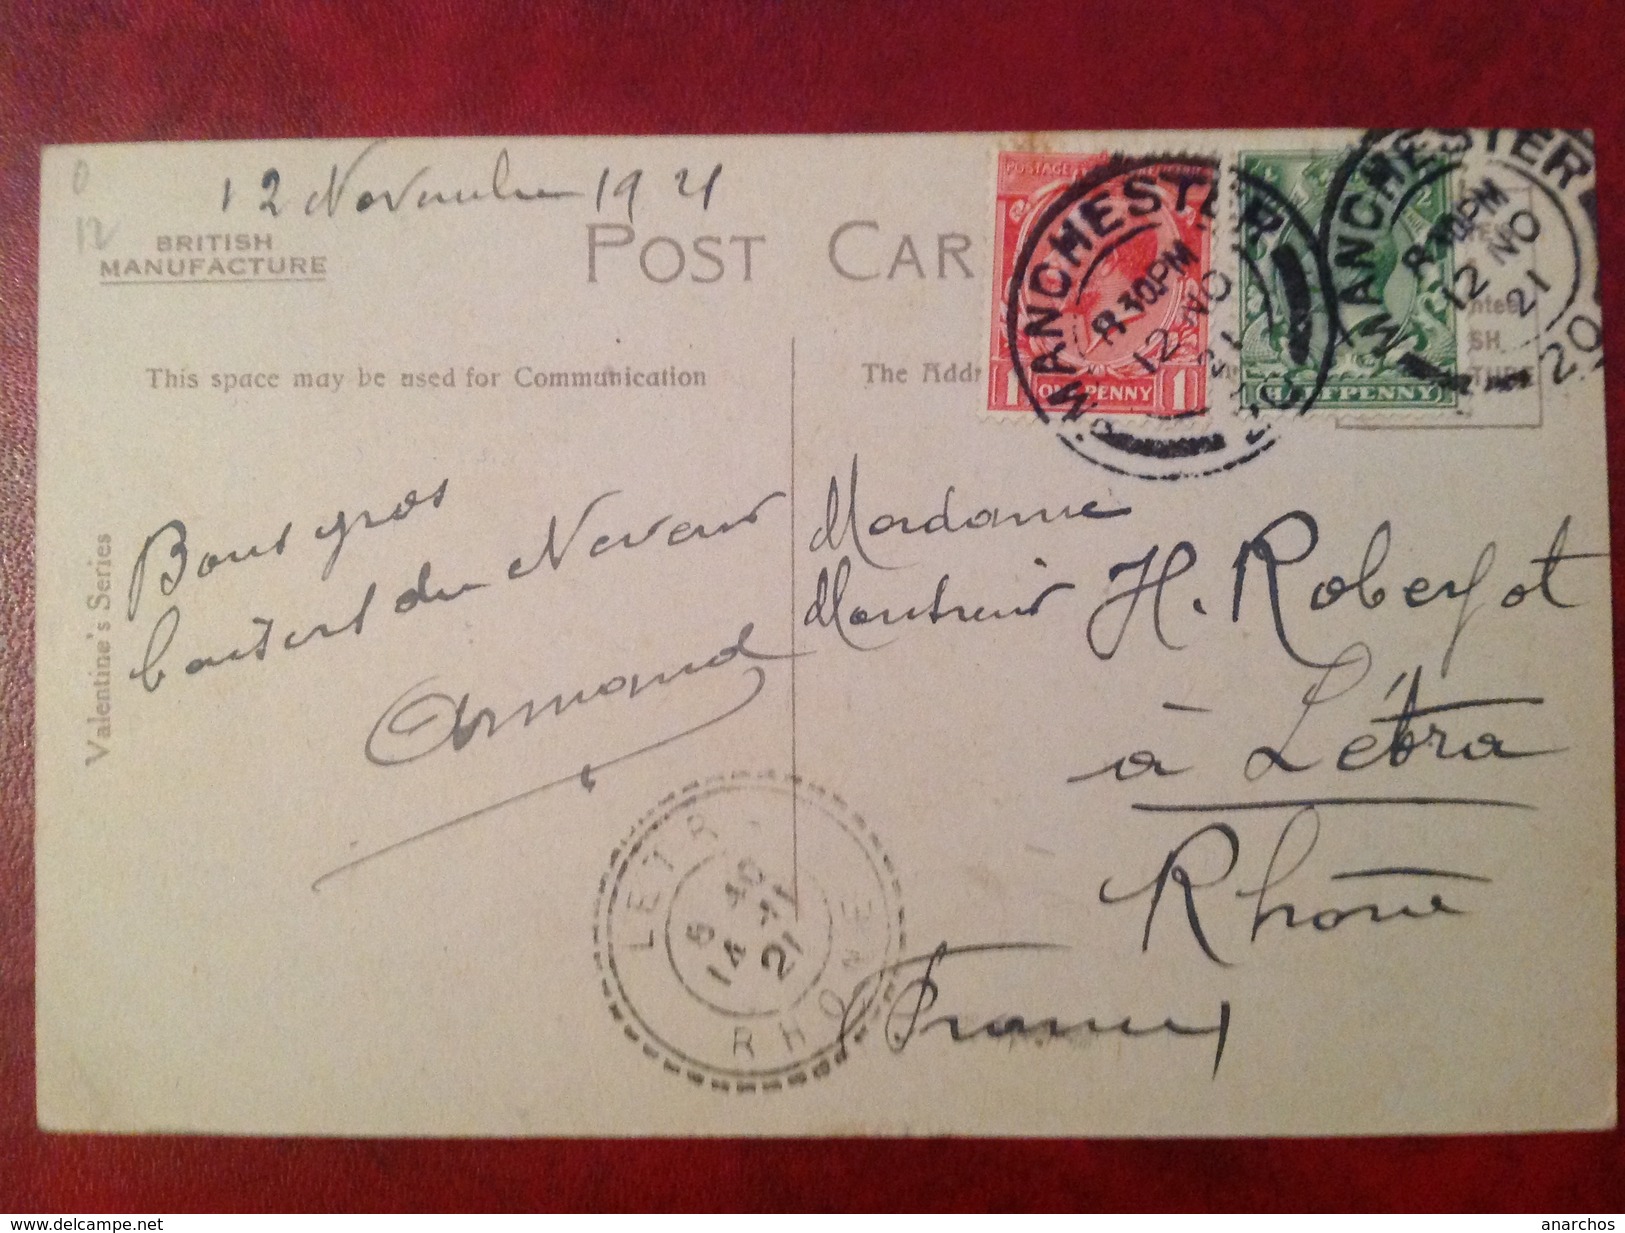 12 Novembre 1921
BRITISH
MANUFACTURE
POST CAR
This space may be used for Communication
The Addr
POSTAGE
ONE PENNY
1 1
HALFPENNY
MANCHESTER
8 30PM
12 NO
21
MANCHESTER
8 30PM
12 NO
21
Valentine's Series
Bons gros
baisers du Neveur
Armand
Madame
Monsieur H. Roberjot
à Létra
Rhône
France
LETR
RHONE
14
21
www.delcampe.net
anarchos